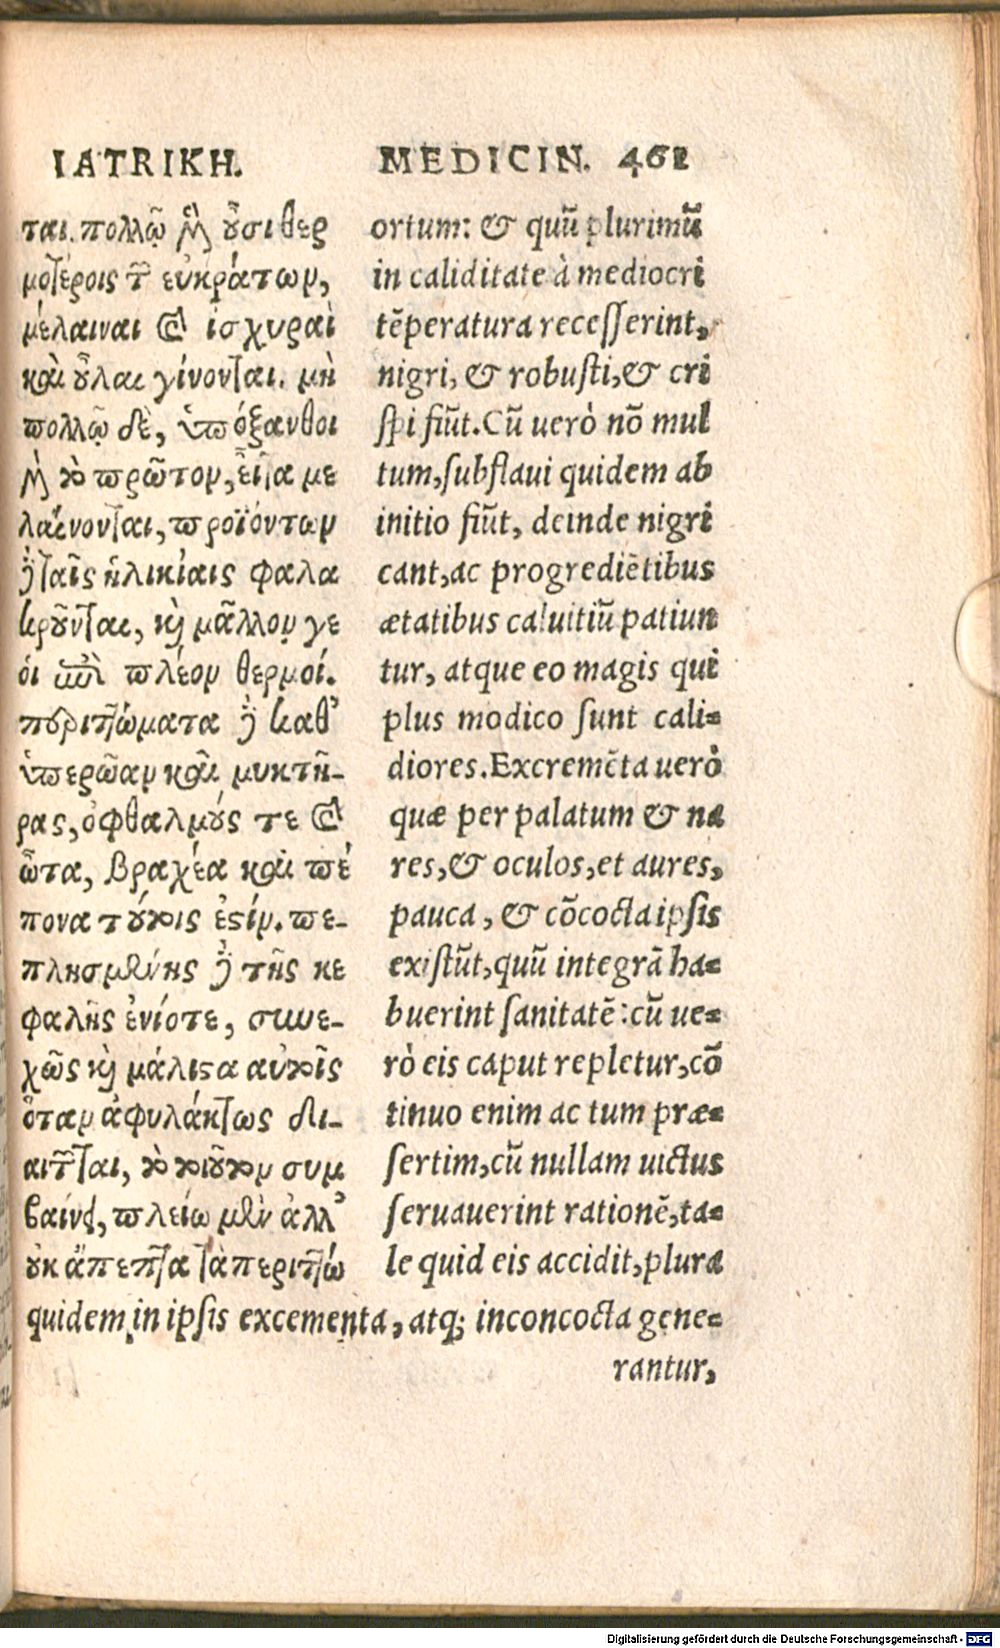 ΙΑΤΡΙΚΗ.
ται. πολλῷ μὲν οὖσι θερ
μοτέροις τῶν εὐκράτων,
μέλαιναι καὶ ἰσχυραὶ
καὶ οὖλαι γίνονται. μὴ
πολλῷ δὲ, ὑπόξανθοι
μὲν τὸ πρῶτον, εἶτα με
λαίνονται, προϊόντων
δὲ ταῖς ἡλικίαις φαλα
κροῦνται, καὶ μᾶλλον γε
οἱ ἐπὶ πλέον θερμοί.
περιττώματα δὲ καθ’
ὑπερῶαν καὶ μυκτῆ-
ρας, ὀφθαλμούς τε καὶ
ὦτα, βραχέα καὶ πέ
πονα τούτοις ἐστίν. πε-
πλησμένης δὲ τῆς κε
φαλῆς ἐνίοτε, συνε-
χῶς καὶ μάλιστα αὐτοῖς
ὅταν ἀφυλάκτως δι-
αιτῶνται, τὸ τοιοῦτον συμ
βαίνει, πλείω μὲν ἀλλ’
οὐκ ἄπεπτα τὰ περιττώ
MEDICIN. 461
ortum: & quũ plurimũ
in caliditate à mediocri
tẽperatura recesserint,
nigri, & robusti, & cri
spi fiũt. Cũ uerò nõ mul
tum, subflaui quidem ab
initio fiũt, deinde nigri
cant, ac progrediẽtibus
ætatibus caluitiũ patiun
tur, atque eo magis qui
plus modico sunt cali-
diores. Excremẽta uerò
quæ per palatum & na
res, & oculos, et aures,
pauca, & cõcocta ipsis
existũt, quũ integrã ha-
buerint sanitatẽ: cũ ue-
rò eis caput repletur, cõ
tinuo enim ac tum præ-
sertim, cũ nullam uictus
seruauerint rationẽ, ta-
le quid eis accidit, plura
quidem in ipsis excementa, atq; inconcocta gene-
rantur,
Digitalisierung gefördert durch die Deutsche Forschungsgemeinschaft - DFG